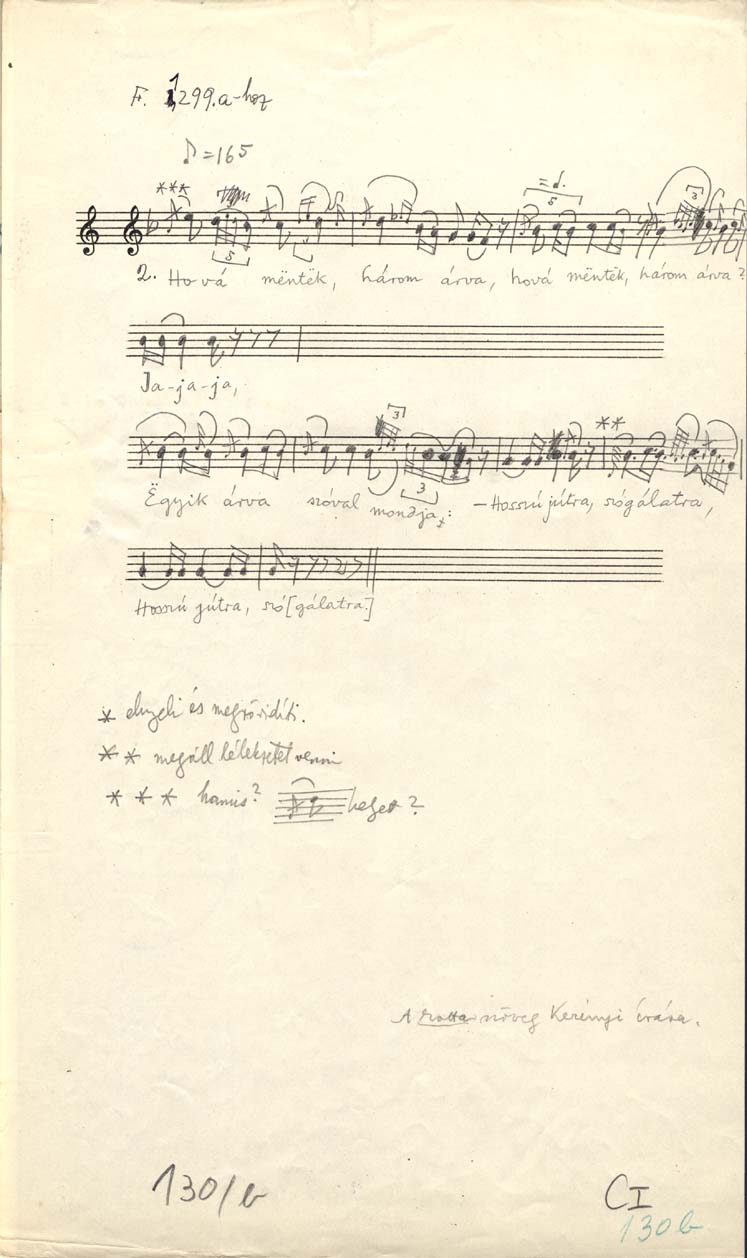 F. 1299.a-hoz
♪=165
***
5
= ♩.
5
3
2. Hová mëntëk, három árva, hová mëntëk, három árva?
Ja-ja-ja,
3
**
3
Ëgyik árva szóval mondja: – Hosszú jútra, szógálatra,
Hosszú jútra, szó[gálatra.]
* elnyeli és megrövidíti.
** megáll lélekzetet venni
*** hamis? helyett?
A szöveg Kerényi írása.
130/b
CI
130b